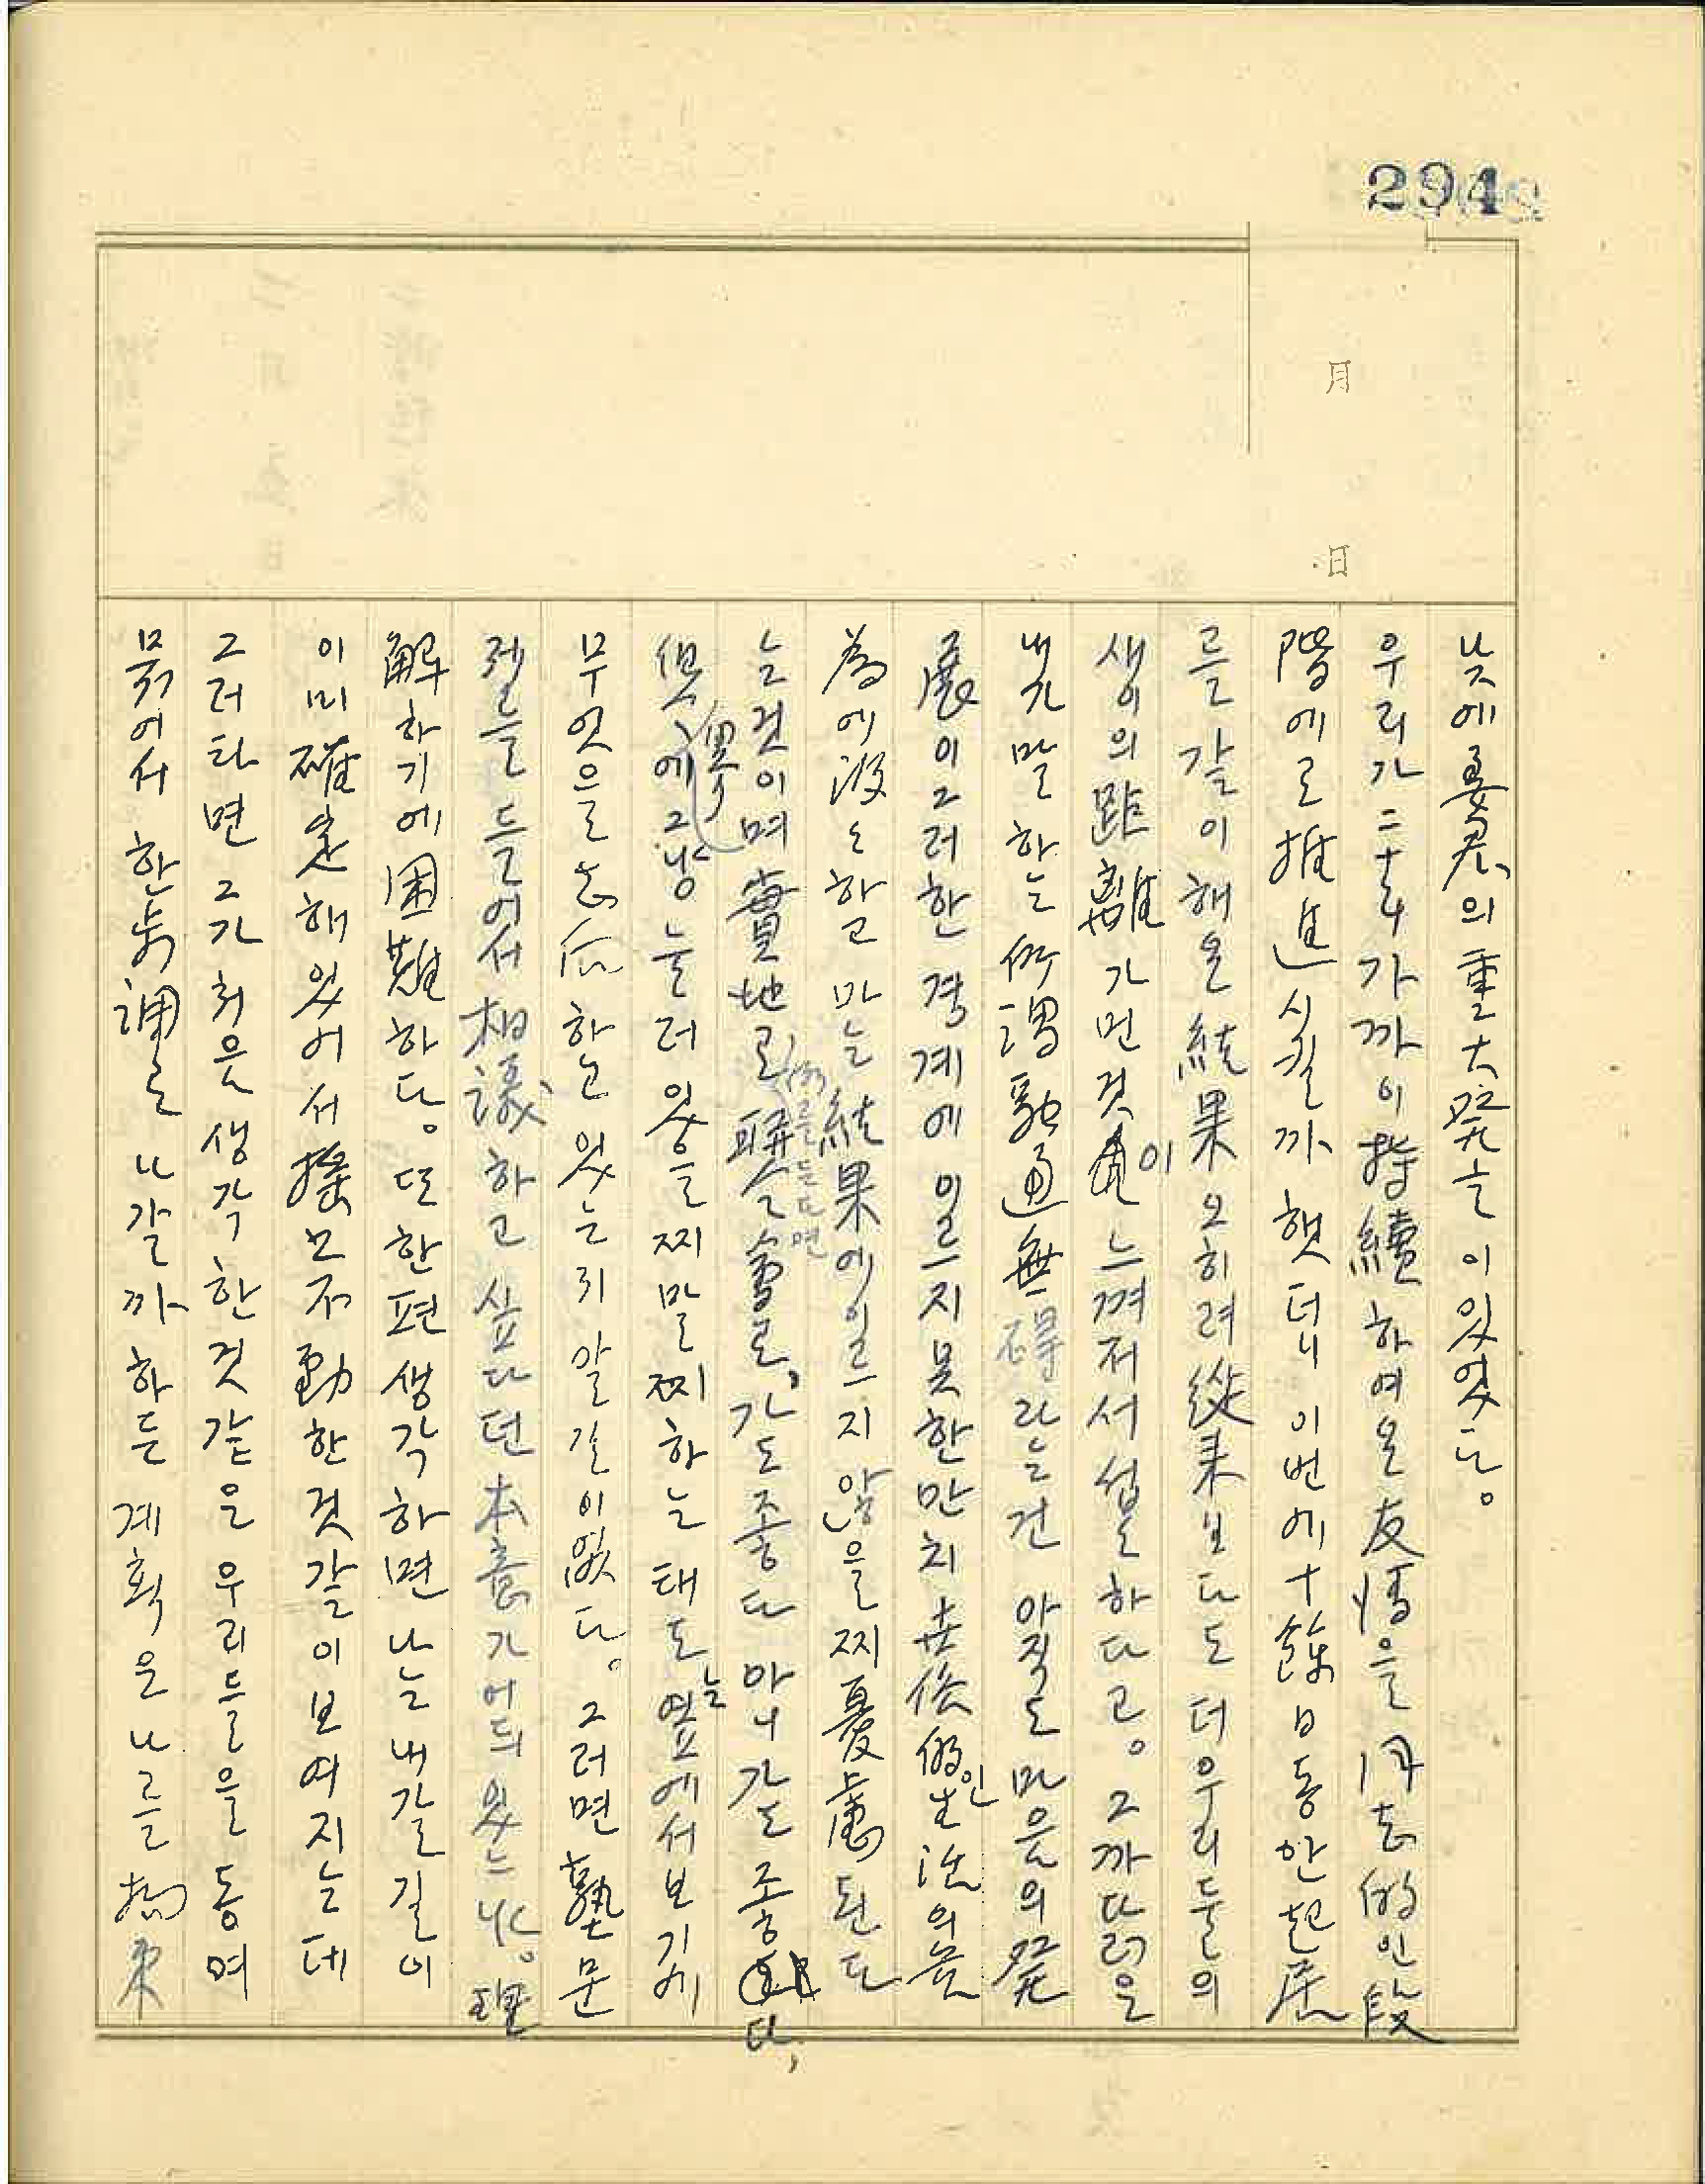 294
月 日
낮에 姜君의 重大発言이 있었다.
우리가 二十年 가까이 持續하여 온 友情을 同志的인 段
階에로 推進시킬까 했더니 이번에 十餘日동안 起居
를 같이 해온 結果 오히려 從来보다도 더 우리 둘의
생이의 距離가 먼 것이 느껴저서 섭섭하다고. 그 까닭은
내가 말하는 所謂 融通無碍라는 건 아직도 마음의 発
展이 그러한 경계에 이르지 못한 만치 世俗的인 生活의
為에 沒 하고 마는 結果에 이르지 않을찌 憂慮된다
는 것이며 實地로 例를 든다면 가도 좋다 아니가도 좋다,
에 그냥 눌러 있을찌 말찌 하는 태도는 옆에서 보기에
무엇을 志向하고 있는지 알 길이 없다. 그러면 塾 문
젤를 들어서 相議하고 싶다던 本意가 어듸 있느냐. 理
解하기에 困難하다. 또 한편 생각하면 나는 내 갈 길이
이미 確定해 있어서 搖 不動한 것 같이 보여지는데
그러타면 그가 취은 생각한 것 같은 우리들을 동여
묶어서 한 步調로 나갈까 하는 계획은 나를 拘束